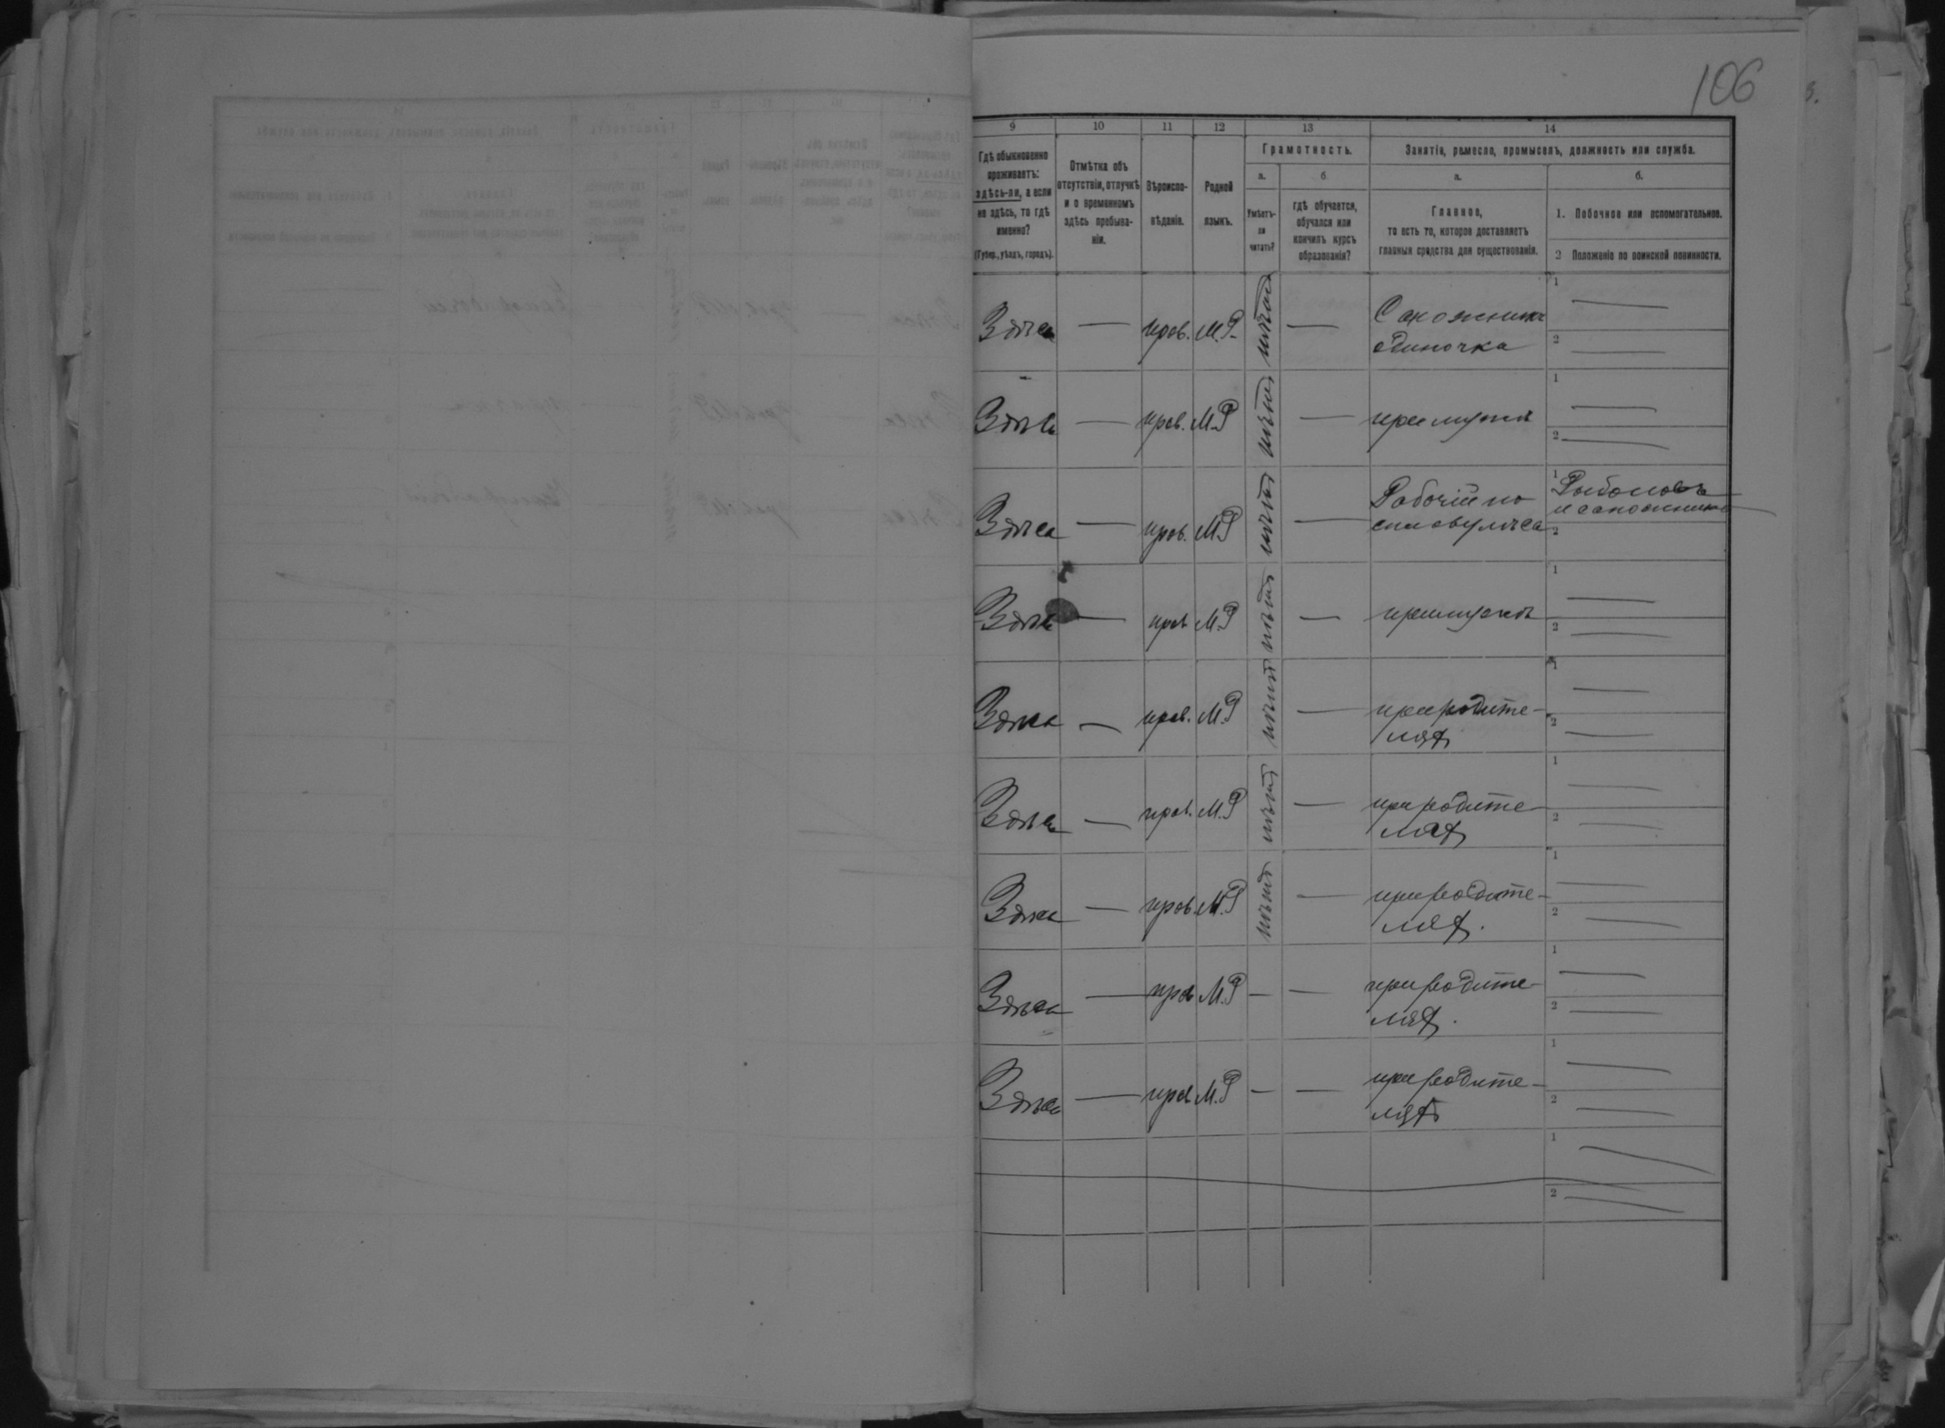 106
9 10 11 12 13 14
Гдѣ обыкновенно
проживаетъ:
здѣсь-ли, а если
не здѣсь, то гдѣ
именно?
(Губер., уѣздъ, городъ).
Отмѣтка объ
отсутствіи, отлучкѣ
и о временномъ
здѣсь пребыва-
ніи.
Вѣроиспо-
вѣданіе.
Родной
языкъ.
Грамотность.
а.
Умѣетъ-
ли
читать?
б
гдѣ обучается,
обучался или
кончилъ курсъ
образованія?
Занятія, ремесло, промыселъ, должность или служба.
а.
Главное,
то есть то, которое доставляетъ
главныя средства для существованія.
б.
1. Побочное или вспомогательное.
2 Положеніе по воинской повинности.
Здѣсь — прав. М.Р. — Сапожникъ 1 —
одиночка 2 —
Здѣсь — прав. М.Р — при мужѣ 1 —
2 —
Здѣсь — прав. М.Р — Рабочій по 1 Рыболовъ
и сапожникъ
2
Здѣсь — прав М.Р — при мужѣ 1 —
2 —
Здѣсь — прав. М.Р — при родите- 1 —
ляхъ 2 —
Здѣсь — прав. М.Р — при родите- 1 —
ляхъ 2 —
Здѣсь — прав. М.Р — при родите- 1 —
ляхъ. 2 —
Здѣсь — прав М.Р — — при родите- 1 —
ляхъ. 2 —
Здѣсь — прав М.Р — — при родите- 1 —
ляхъ 2 —
1 —
2 —